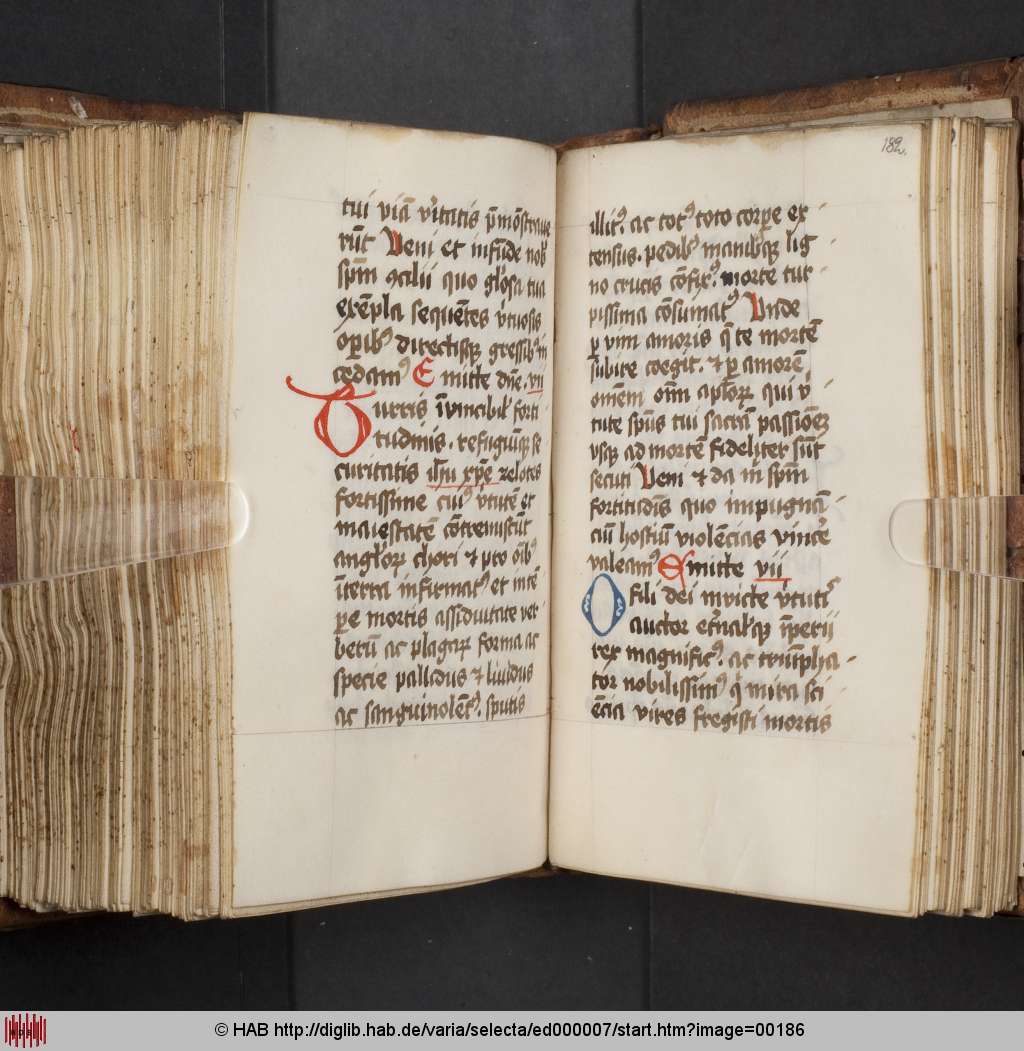 tui viā v̓itatis p̄mōstraue
rūt Veni et infūde nob̄
sp̄m ꝯsilii quo gl̓osa tua
exēpla sequētes v̓tuosis
op̄ibꝰ directisqꝫ gressibꝰ in
cedamꝰ Emitte dn̄e. vii
Turris īvincibil̓ forti
tudinis. refugiūqꝫ se
curitatis ih̄u xp̄e zelotes
fortissime cuiꝰ v̓tutē et
maiestatē cōtremiscūt
angl̓oꝝ chori ⁊ pro oībꝰ
ī terra infirmatꝰ et
mortis assiduitate ver
berū ac plagaꝝ forma ac
specie pallidus ⁊ liuidus
ac sanguinolētꝰ. sputis
182.
illitꝰ. ac totꝰ toto corꝑe ex
tensus. pedibꝰ manibꝰqꝫ lig
no crucis cōfixꝰ. morte tur
pissima cōsumatꝰ Vnde
ꝑ vim amoris q̄ te mortē
subire coegit. ⁊ ꝑ amorē
om̄em om̄i apl̓oꝝ qui v̓
tute sp̄us tui sacrā passionē
vsqꝫ ad mortē fideliter sūt
secuti Veni ⁊ da in sp̄m
fortitudīs quo impugnā
ciū hostiū violēcias vinc̓e
valeamꝰ Emitte vii
O fili dei invicte v̓tutis
auctor et̓nalisqꝫ īperii
rex magnificꝰ. ac triūpha
tor nobilissimꝰ q̓ mira sci
ēcia vires fregisti mortis
© HAB http://diglib.hab.de/varia/selecta/ed000007/start.htm?image=00186